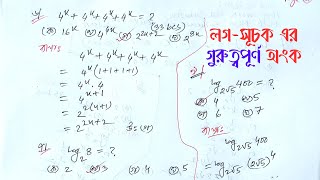 প্রঃ 4^x + 4^x + 4^x + 4^x = ?
(ক) 16^x (খ) 4^{4x} (গ) 2^{2x+2} (ঘ) 2^{8x}
4^x + 4^x + 4^x + 4^x
= 4^x (1+1+1+1)
= 4^x . 4
= 4^{x+1}
= 2^{2(x+1)}
= 2^{2x+2}
প্রঃ log_2 8 = ?
2 3 (গ) 4 (ঘ) 5
লগ-সূচক এর
গুরুত্বপূর্ণ অংক
log_{2√5} 400 = ?
4 5
6 7
log_{2√5} 400
= log_{2√5} (2√5)^4